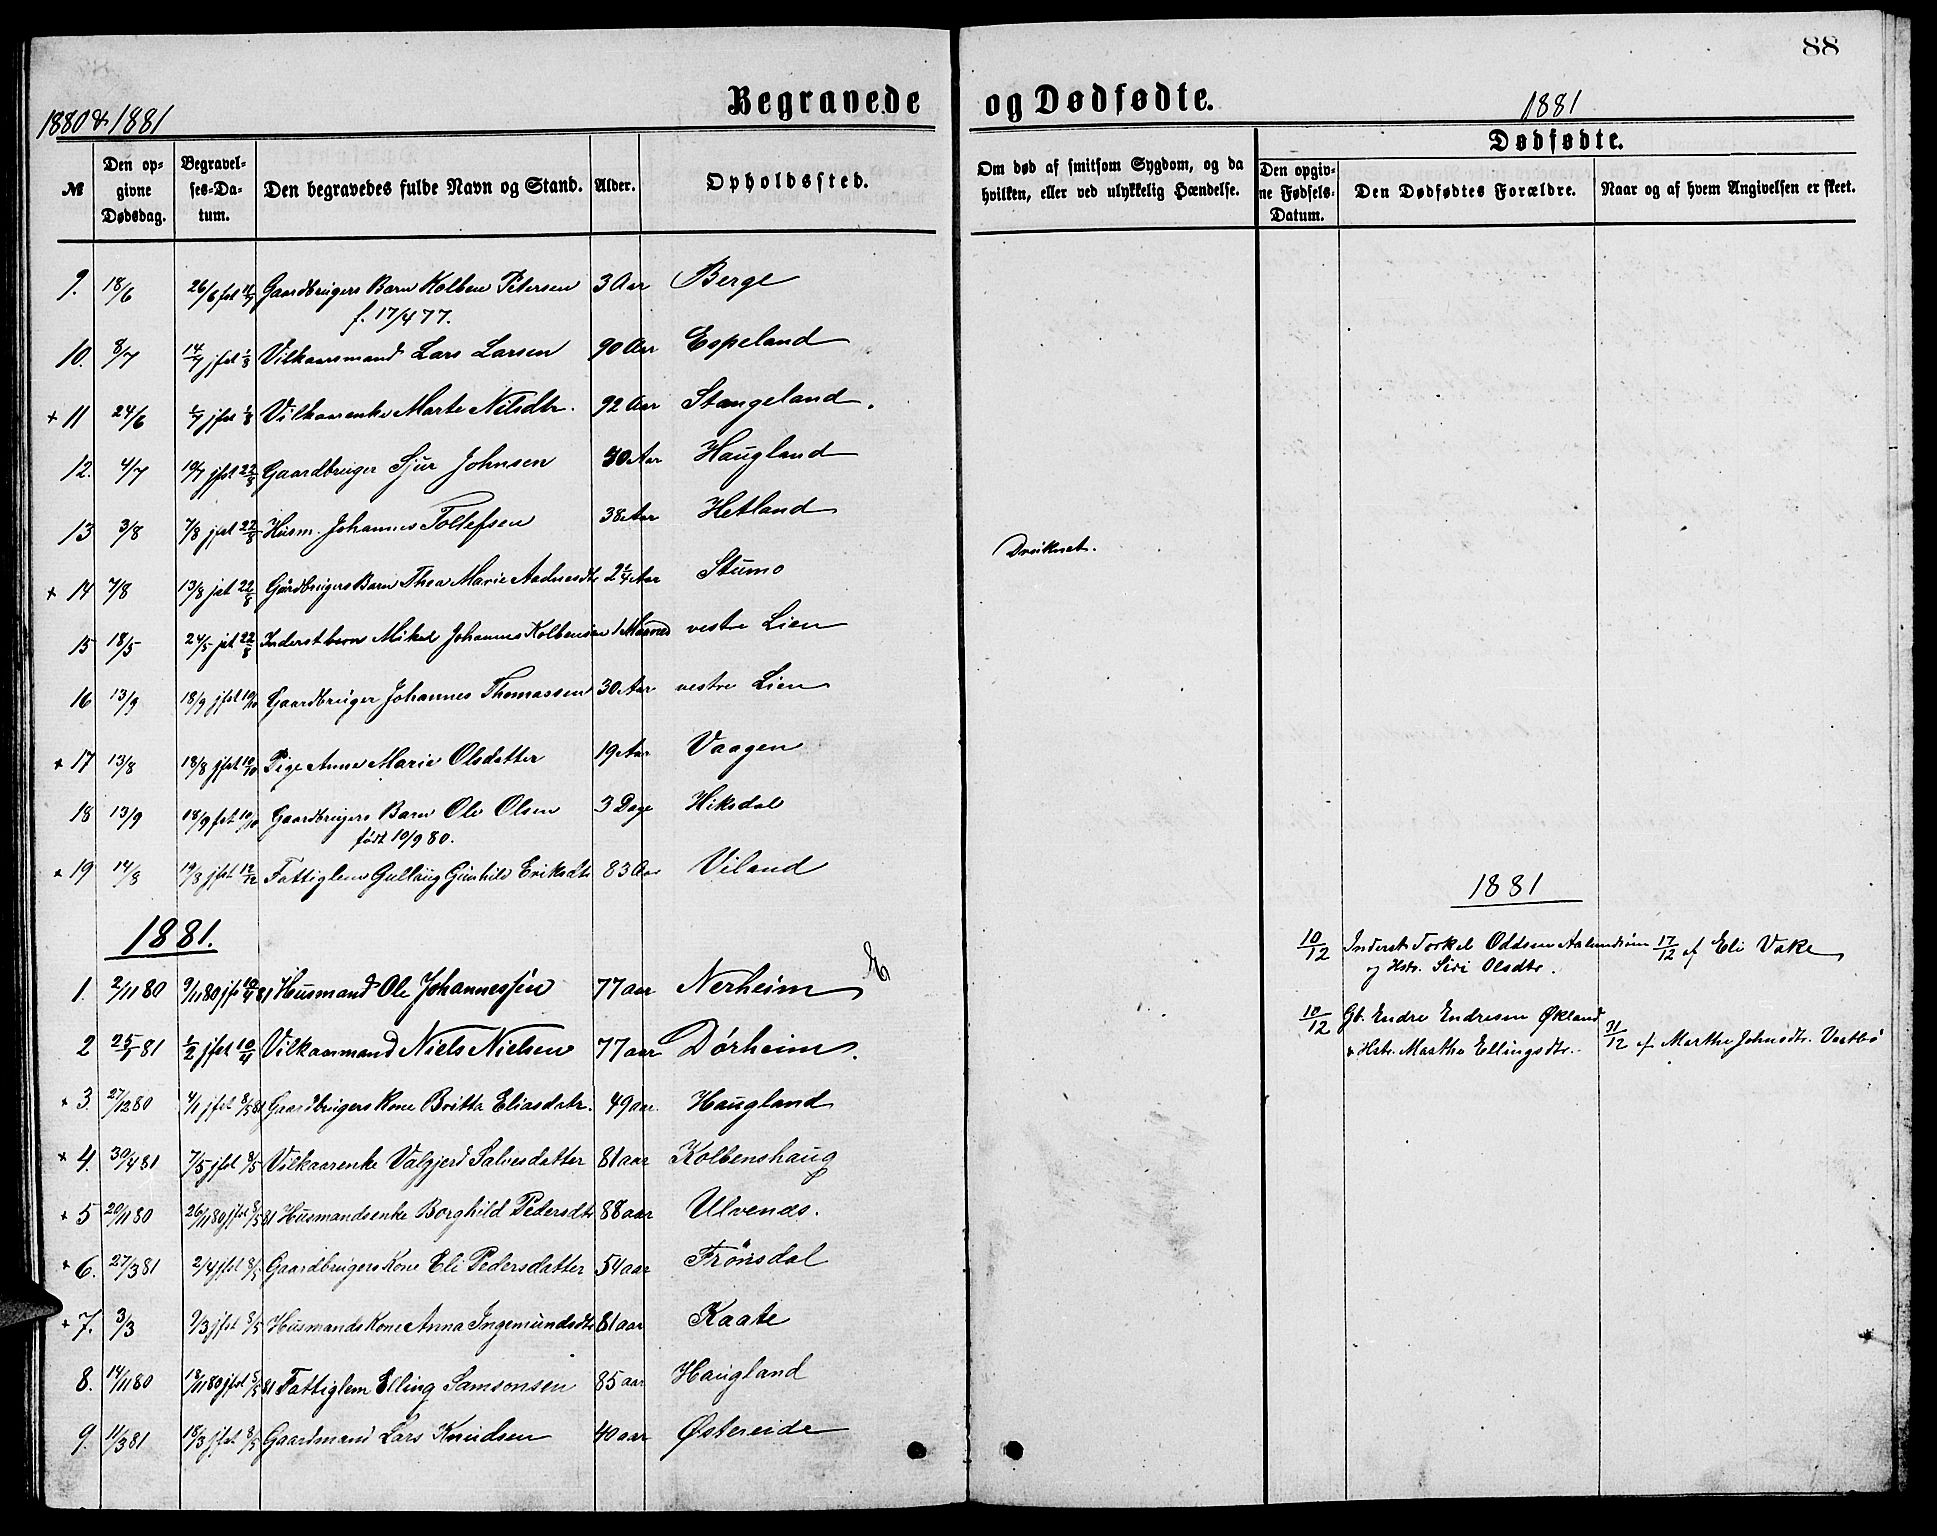 88
1880 & 1881
Begravede og Dødfødte.
1881
Dødfødte.
№ Den opgivne Dødsdag. Begravelses-Datum. Den begravedes fulde Navn og Stand. Alder. Opholdssted. Om død af smitsom Sygdom, og da hvilken, eller ved ulykkelig Hændelse. Den opgivne Fødsels-Datum. Den Dødfødtes Forældre. Naar og af hvem Angivelsen er skeet.
9. 18/6 26/6 Gaardbrugers Barn Kolben Petersen 3 Aar Berge
f. 17/4 77.
10. 8/7 14/7 jfst 1/8 Vilkaarsmand Lars Larsen 90 Aar Espeland
+ 11 24/6 1/7 jfst 1/8 Vilkaarenke Marte Nilsdtr. 92 Aar Stangeland.
12. 4/7 10/7 jfst 22/8 Gaardbruger Sjur Johnsen Aar Haugland
13 3/8 7/8 jfst 22/8 Husm. Johannes Tollefsen 38 Aar Hetland Druknet.
+ 14 7/8 13/8 jst 22/8 Gårdbrugers Barn Thea Marie Aadnesdtr 2 1/4 Aar Stumo
15 18/5 24/5 jst 22/8 Inderstbarn Mikal Johannes Kolbensen 1 Maaned vestre Lien
16 13/9 18/9 jfst 10/10 Gaardbruger Johannes Thomassen 30 Aar vestre Lien
+ 17 13/8 18/8 jfst 10/10 Pige Anne Marie Olsdatter 19 Aar Vaagen
18 13/9 18/9 fst 10/10 Gaardbrugers Barn Ole Olsen 3 Dage Hiksdal
født 10/9 80.
+ 19 14/8 19/8 jfst 12/12 Fattiglem Gullaug Gunhild Eriksdtr 83 Aar Viland
1881.
1881
1. 2/11 80 9/11 80 jfst 10/4 81 Husmand Ole Johannessen 77 aar Nerheim
10/12 Inderst Torkel Oddsen Aalendsøen 17/12 af Eli Vake
og Hstr. Siri Olsdtr.
2 25/1 81 1/2 jfst 10/4 Vilkaarmand Niels Nielsen 77 aar Dørheim.
10/12 Gb. Endre Endresen Økland 31/12 af Marthe Johnsdtr. Vestbø
& Hstr. Martha Ellingsdtr.
+ 3. 27/12 80 4/1 jfst 8/5 81 Gaardbrugers Kone Britta Eliasdatr. 49 aar. Haugland
+ 4. 30/4 81 7/5 jfst 8/5 Vilkaarenke Valgjerd Salvesdatter 81 aar Kolbenshaug
+ 5 20/11 80 26/11 80 jfst 8/5 81 Husmandsenke Borghild Pedersdtr 88 aar Ulvenes.
+ 6. 27/3 81 2/4 jfst 8/5 Gaardbrugers Kone Eli Pedersdatter 54 aar Frønsdal
+ 7. 3/3 9/3 jfst 8/5 Husmands Kone Anna Ingemundsdtr 81 aar Kaate
8. 14/11 80 18/11 80 jfst 8/5 81 Fattiglem Elling Samsonsen 85 aar Haugland
9. 11/3 81 18/3 jfst 8/5 Gaardmand Lars Knudsen 40 aar Østereide